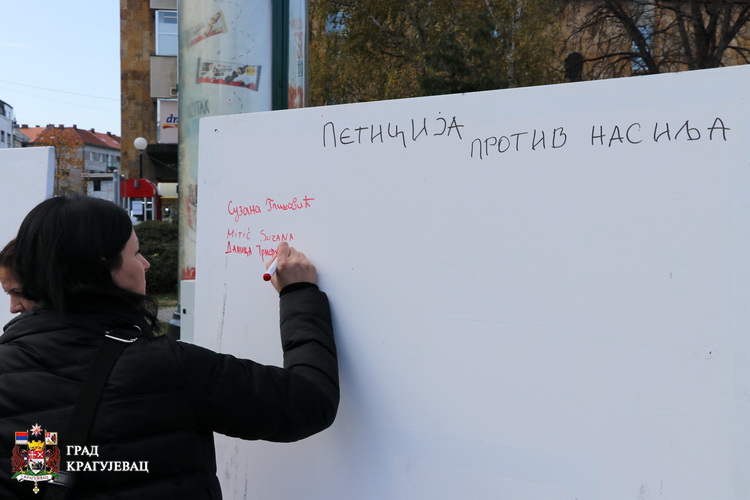 ПЕТИЦИЈА ПРОТИВ НАСИЉА
Сузана
Mitić Suzana
Даница
ГРАД
КРАГУЈЕВАЦ